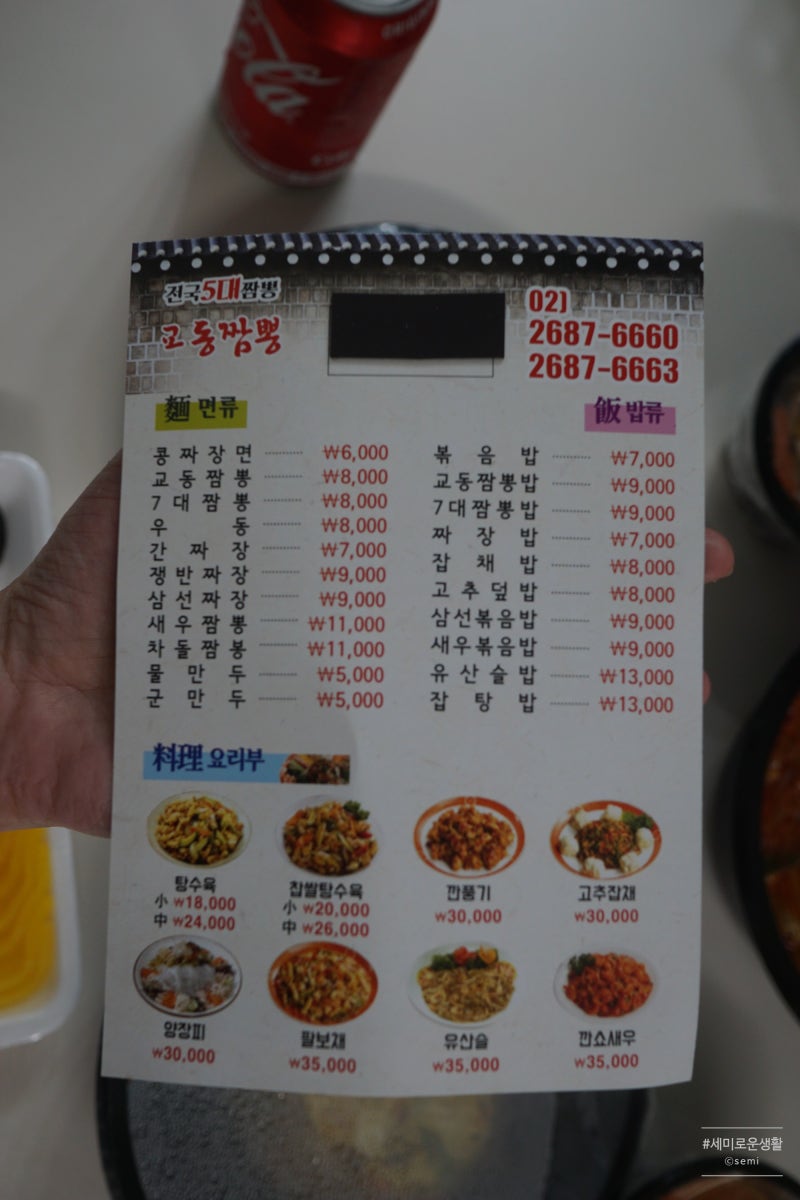 Cola
전국5대짬뽕
교동짬뽕
02)
2687-6660
2687-6663
麵 면류
콩짜장면 ₩6,000
교동짬뽕 ₩8,000
7대짬뽕 ₩8,000
우동 ₩8,000
간짜장 ₩7,000
쟁반짜장 ₩9,000
삼선짜장 ₩9,000
새우짬뽕 ₩11,000
차돌짬뽕 ₩11,000
물만두 ₩5,000
군만두 ₩5,000
飯 밥류
볶음밥 ₩7,000
교동짬뽕밥 ₩9,000
7대짬뽕밥 ₩9,000
짜장밥 ₩7,000
잡채밥 ₩8,000
고추덮밥 ₩8,000
삼선볶음밥 ₩9,000
새우볶음밥 ₩9,000
유산슬밥 ₩13,000
잡탕밥 ₩13,000
料理 요리부
탕수육
小 ₩18,000
中 ₩24,000
찹쌀탕수육
小 ₩20,000
中 ₩26,000
깐풍기
₩30,000
고추잡채
₩30,000
양장피
₩30,000
팔보채
₩35,000
유산슬
₩35,000
깐쇼새우
₩35,000
#세미로운생활
©semi